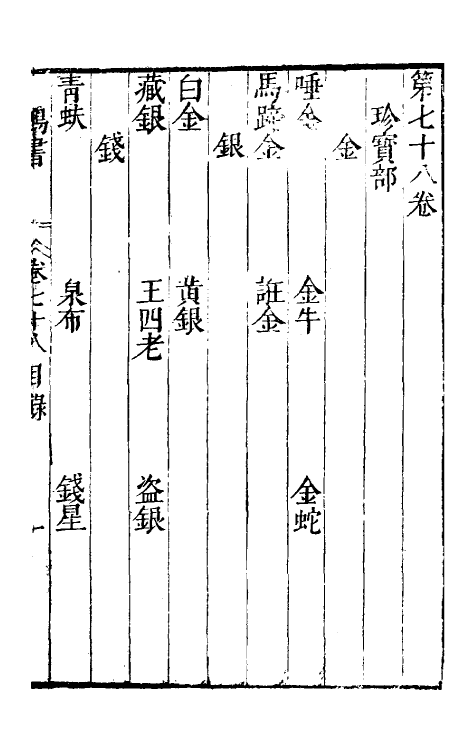 第七十八卷
珍寶部
金
唾金 金牛 金蛇
馬蹄金 誑金
銀
白金 黃銀
藏銀 王四老 盗銀
錢
青蚨 泉布 錢星
卷七十八目錄 一